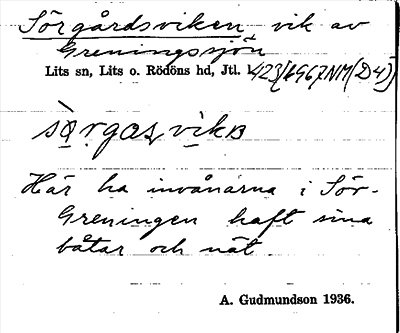 Sörgårdsviken, vik av
Greningssjön
Lits sn, Lits o. Rödöns hd, Jtl.
Här ha invånarna i Sör-
Greningen haft sina
båtar och nät.
A. Gudmundson 1936.